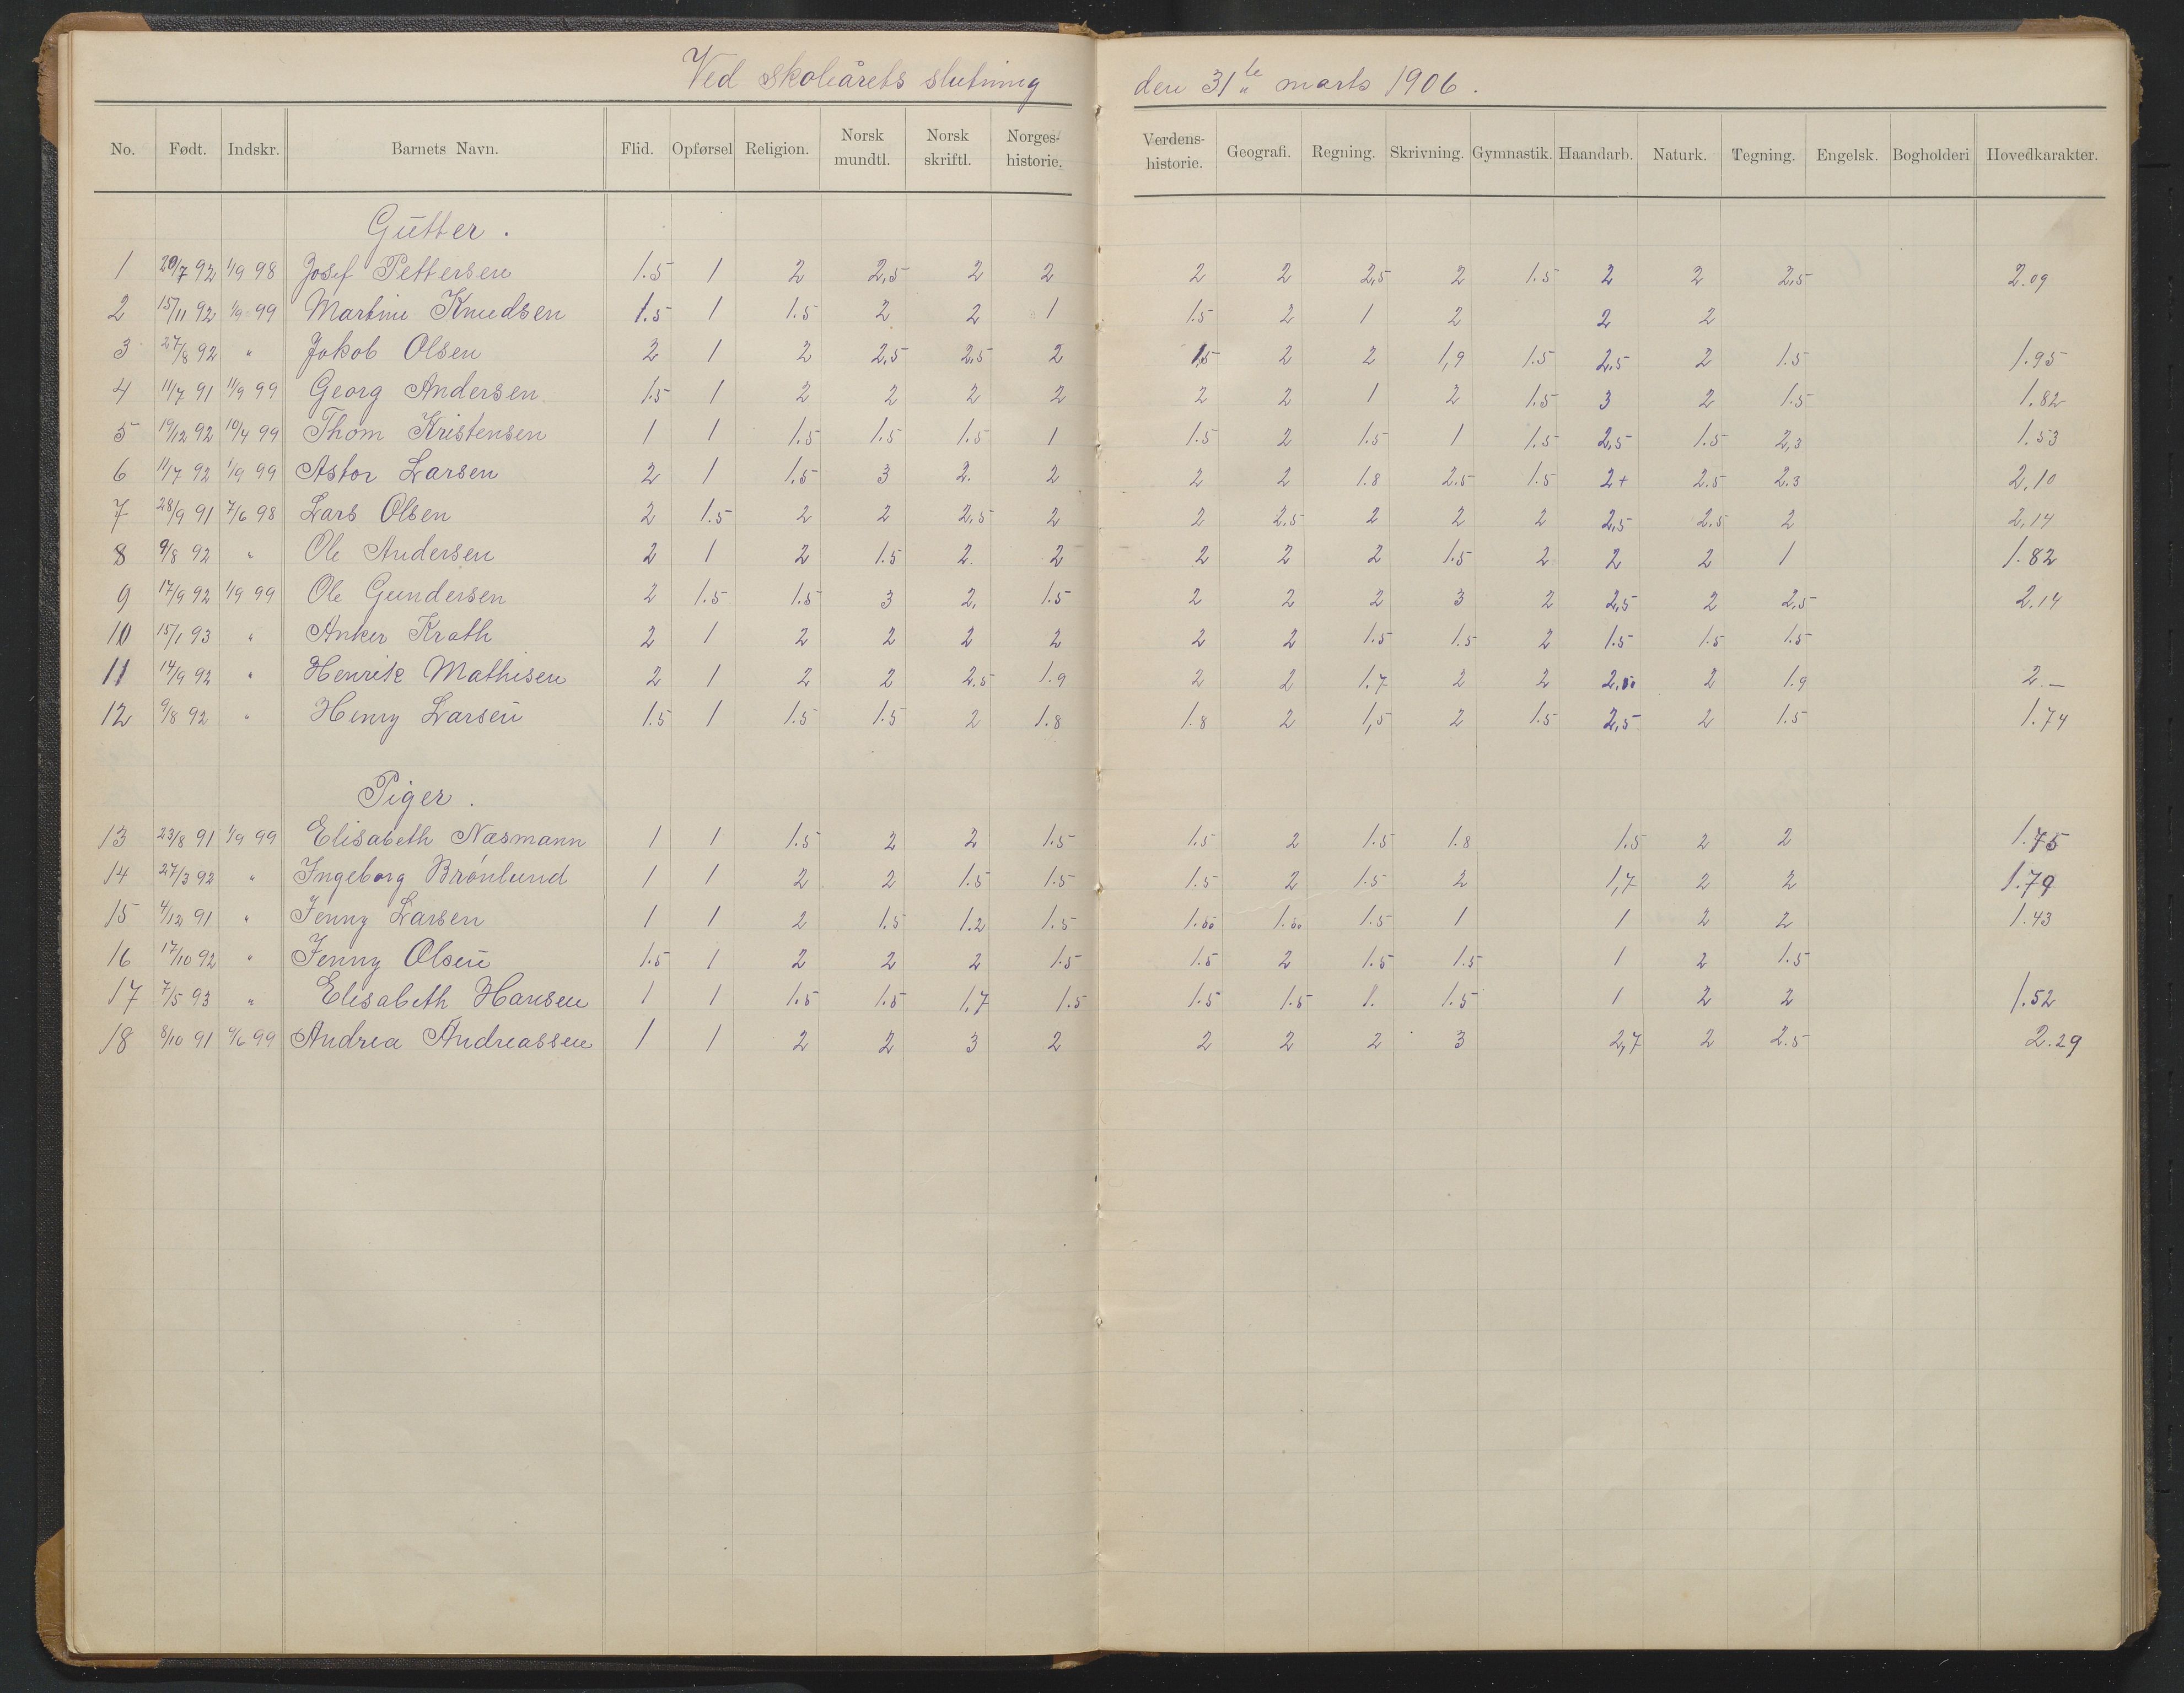 Ved skoleårets slutning den 31te marts 1906.
No. Født. Indskr. Barnets Navn. Flid. Opførsel Religion. Norsk mundtl. Norsk skriftl. Norges-historie. Verdens-historie. Geografi. Regning. Skrivning. Gymnastik. Haandarb. Naturk. Tegning. Engelsk. Bogholderi Hovedkarakter.
Gutter.
1 20/7 92 1/9 98 Josef Pettersen 1.5 1 2 2,5 2 2 2 2 2,5 2 1.5 2 2 2,5 2.09
2 15/11 92 1/9 99 Martin Knudsen 1.5 1 1.5 2 2 1 1.5 2 1 2 2 2
3 27/8 92 " Jakob Olsen 2 1 2 2,5 2,5 2 1,5 2 2 1,9 1.5 2,5 2 1.5 1.95
4 11/7 91 11/9 99 Georg Andersen 1.5 1 2 2 2 2 2 2 1 2 1.5 3 2 1.5 1.82
5 19/12 92 10/4 99 Thom Kristensen 1 1 1.5 1.5 1.5 1 1.5 2 1.5 1 1.5 2,5 1.5 2,3 1.53
6 11/7 92 1/9 99 Astor Larsen 2 1 1.5 3 2. 2 2 2 1.8 2.5 1.5 2+ 2.5 2.3 2,10
7 28/9 91 7/6 98 Lars Olsen 2 1.5 2 2 2,5 2 2 2.5 2 2 2 2,5 2.5 2 2,14
8 9/8 92 " Ole Andersen 2 1 2 1.5 2. 2 2 2 2 1.5 2 2 2 1 1.82
9 17/9 92 1/9 99 Ole Gundersen 2 1.5 1.5 3 2, 1.5 2 2 2 3 2 2,5 2 2,5 2.14
10 15/1 93 " Anker Krath 2 1 2 2 2 2 2 2 1.5 1.5 2 1.5 1.5 1.5
11 14/9 92 " Henrik Mathisen 2 1 2 2 2.5 1.9 2 2 1.7 2 2 2.00 2 1.9 2.—
12 9/8 92 " Henry Larsen 1.5 1 1.5 1.5 2 1.8 1.8 2 1,5 2 1.5 2,5 2 1.5 1.74
Piger.
13 23/8 91 1/9 99 Elisabeth Næsmann 1 1 1.5 2 2 1.5 1.5 2 1.5 1.8 1.5 2 2 1.75
14 27/3 92 " Ingeborg Brønlund 1 1 2 2 1.5 1.5 1.5 2 1.5 2 1,7 2 2 1.79
15 4/12 91 " Jenny Larsen 1 1 2 1.5 1.2 1.5 1.00 1.00 1.5 1 1 2 2 1.43
16 17/10 92 " Jenny Olsen 1.5 1 2 2 2 1.5 1.5 2 1.5 1.5 1 2 1.5
17 7/5 93 " Elisabeth Hansen 1 1 1.5 1.5 1,7 1.5 1.5 1.5 1. 1.5 1 2 2 1.52
18 8/10 91 9/6 99 Andrea Andreassen 1 1 2 2 3 2 2 2 2 3 2,7 2 2.5 2.29